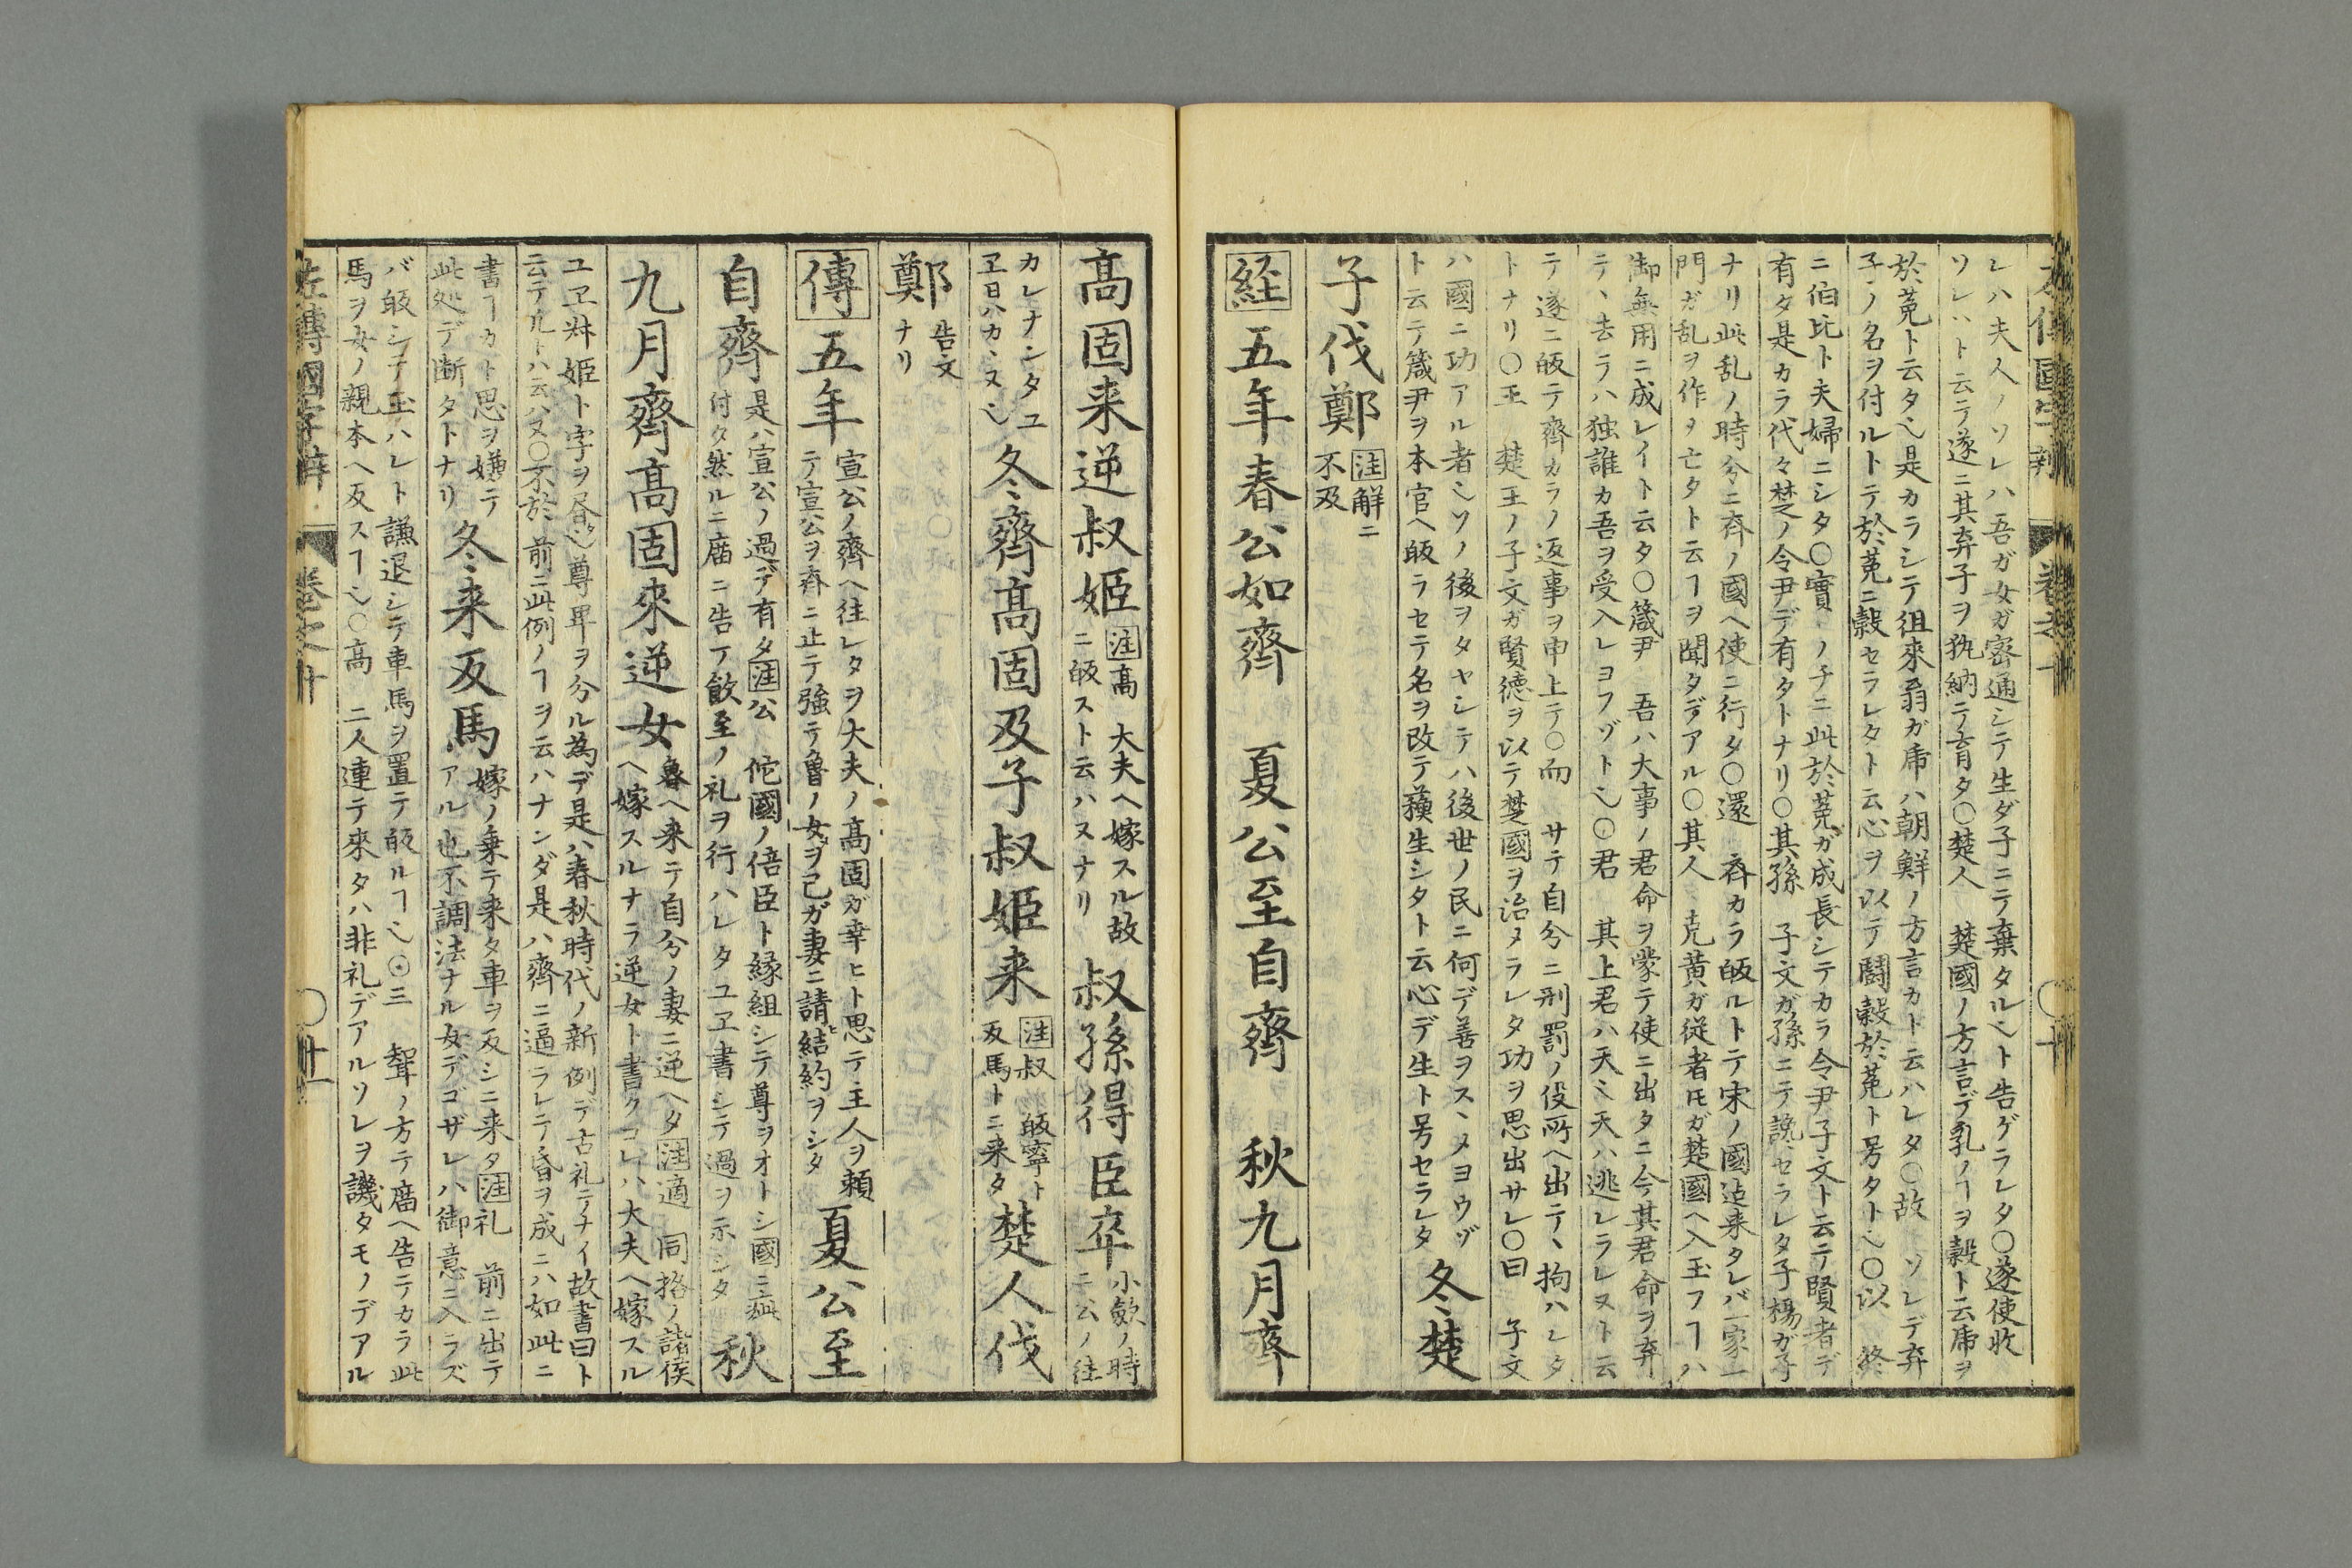 レハ夫人ノソレハ吾ガ女ガ密通シテ生ダ子ニテ棄タルヿト告ゲラレタ〇遂使收
ソレハト云テ遂ニ其弃子ヲ執納テ育タ〇楚人 楚國ノ方言デ乳ノヿヲ穀ト云虎ヲ
於菟ト云タ也是カラシテ徂來翁ガ虎ハ朝鮮ノ方言カト云ハレタ〇故 ソレデ弃
子ノ名ヲ付ルトテ於菟ニ穀セラレタト云心ヲ以テ鬪穀於菟ト号タト也〇以 終
ニ伯比ト夫婦ニシタ〇實 ノチニ此於菟ガ成長シテカラ令尹子文ト云テ賢者デ
有タ是カラ代々楚ノ令尹デ有タトナリ〇其孫 子文ガ孫ニテ讒セラレタ子揚ガ子
ナリ此乱ノ時分ニ斉ノ國ヘ使ニ行タ〇還 斉カラ皈ルトテ宋ノ國迠来タレバ一家一
門ガ乱ヲ作タ亡タト云ヿヲ聞タデアル〇其人 克黄ガ従者𪜈ガ楚國ヘ入玉フヿハ
御無用ニ成レイト云タ〇箴尹 吾ハ大事ノ君命ヲ蒙テ使ニ出タニ今其君命ヲ弃
テ、去ラハ独誰カ吾ヲ受入レヨフゾト也〇君 其上君ハ天也天ハ逃レラレヌト云
テ遂ニ皈テ齊カラノ返事ヲ申上テ〇而 サテ自分ニ刑罰ノ役所ヘ出テ、拘ハレタ
トナリ〇王 楚王ノ子文ガ賢徳ヲ以テ楚國ヲ治メラレタ功ヲ思出サレ〇曰 子文
ハ國ニ功アル者也ソノ後ヲタヤシテハ後世ノ民ニ何デ善ヲスヽメヨウゾ
ト云テ箴尹ヲ本官ヘ皈ラセテ名ヲ改テ蘓生シタト云心デ生ト号セラレタ 冬楚
子伐鄭 注解ニ不及
経五年春公如齊 夏公至自齊 秋九月齊
高固来逆叔姫 注高 大夫ヘ嫁スル故ニ皈スト云ハヌナリ 叔孫得臣卒 小歛ノ時ニ公ノ往
カレナンタユヱ日ハカヽヌ也 冬齊高固及子叔姫来 注叔 皈寧ト反馬トニ来タ 楚人伐
鄭 告文ナリ
傳五年 宣公ノ齊ヘ往レタヲ大夫ノ高固ガ幸ヒト思テ主人ヲ頼テ宣公ヲ斉ニ止テ強テ魯ノ女ヲ己ガ妻ニ請ヒ結約ヲシタ 夏公至
自齊 是ハ宣公ノ過デ有タ注公 佗國ノ倍臣ト縁組シテ尊ヲオトシ國ニ
付タ然ルニ庿ニ告テ飲至ノ礼ヲ行ハレタユヱ書シテ過ヲ示シタ 秋
九月齊高固來逆女 魯ヘ来テ自分ノ妻ニ逆ヘタ注適 同挌ノ諸侯ヘ嫁スルナラ逆女ト書クコレハ大夫ヘ嫁スル
ユヱ叔姫ト字ヲ昏也尊卑ヲ分ル為デ是ハ春秋時代ノ新例デ古礼テナイ故書曰ト
云テルトハ云ハヌ〇不於 前ニ此例ノヿヲ云ハナンダ是ハ齊ニ逼ラレテ昏ヲ成ニハ如此ニ
書ヿカト思ヲ嫌テ此処デ断タトナリ 冬来反馬 嫁ノ乗テ来タ車ヲ反シニ来タ注礼 前ニ出テアル也不調法ナル女デゴザレハ御意ニ入ラズ
バ皈シテ玉ハレト謙退シテ車馬ヲ置テ皈ルヿ也〇三 聟ノ方テ庿ヘ告テカラ此
馬ヲ女ノ親本ヘ反スヿ也〇高 二人連テ來タハ非礼デアルソレヲ譏タモノデアル
左傳國字辨 巻之十 〇十一